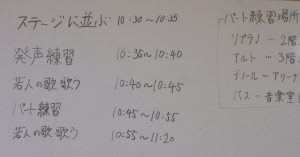 ステージに並ぶ 10:30~10:35
発声練習 10:35~10:40
若人の歌歌う 10:40~10:45
パート練習 10:45~10:55
若人の歌歌う 10:55~11:20
パート練習場所
ソプラノ … 2階
アルト … 3階
テノール … アリーナ
バス … 音楽室